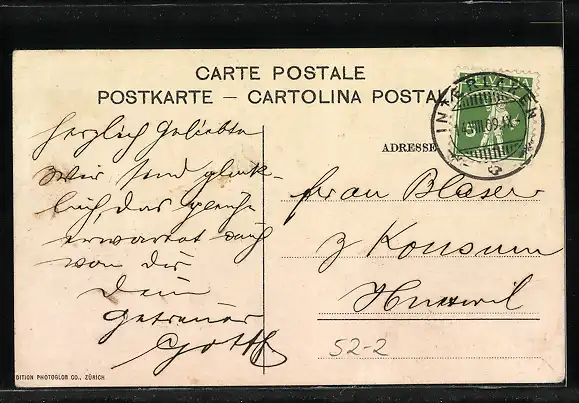 CARTE POSTALE
POSTKARTE — CARTOLINA POSTALE
HELVETIA
INTERLAKEN
14.VIII.09.
ADRESSE
Herzlich Geliebte
Wir sind glück-
lich, das gleiche
erwartet auch
von dir
Dein
Getreuer
Gottf
Frau Blaser
z Konsum
Huttwil
52-2
DITION PHOTOGLOB CO., ZÜRICH